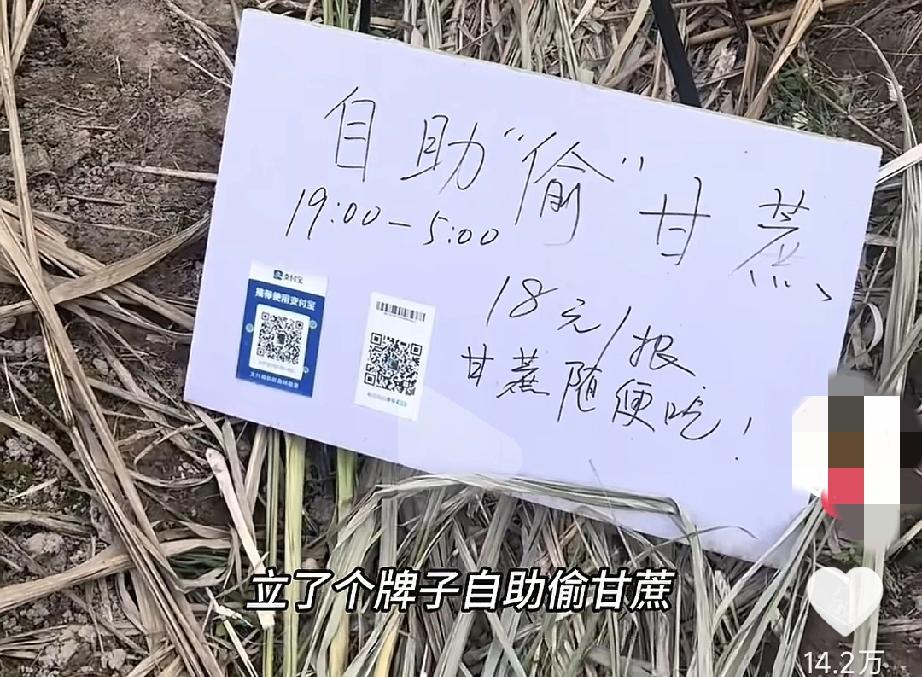 自助“偷”甘蔗
19:00-5:00
18元/根
甘蔗随便吃!
支付宝
推荐使用支付宝
立了个牌子自助偷甘蔗
14.2万